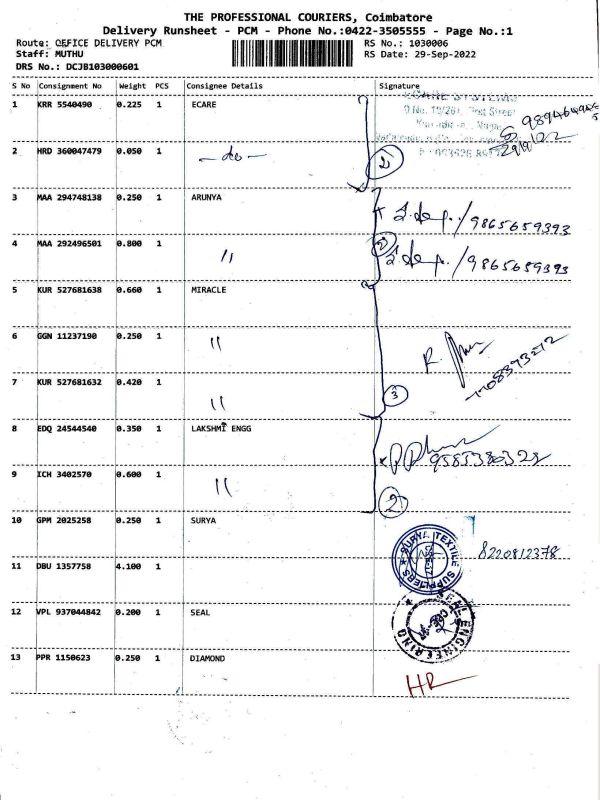 THE PROFESSIONAL COURIERS, Coimbatore
Delivery Runsheet - PCM - Phone No.:0422-3505555 - Page No.:1
Route: OFFICE DELIVERY PCM
Staff: MUTHU
DRS No.: DCJB103000601
RS No.: 1030006
RS Date: 29-Sep-2022
S No Consignment No Weight PCS Consignee Details Signature
1 KRR 5540490 0.225 1 ECARE
ECARE SYSTEMS
29/9/22
2 HRD 360047479 0.050 1 - do - 2
3 MAA 294748138 0.250 1 ARUNYA 9865659393
4 MAA 292496501 0.800 1 " 2 9865659393
5 KUR 527681638 0.660 1 MIRACLE
6 GGN 11237190 0.250 1 "
7 KUR 527681632 0.420 1 " 3
8 EDQ 24544540 0.350 1 LAKSHMI ENGG 9585380328
9 ICH 3402570 0.600 1 " 2
10 GPM 2025258 0.250 1 SURYA 8220812378
SURYA TEXTILE SUPPLIERS
11 DBU 1357758 4.100 1
12 VPL 937044842 0.200 1 SEAL
SEAL ENGINEERING
CBE
13 PPR 1150623 0.250 1 DIAMOND HR